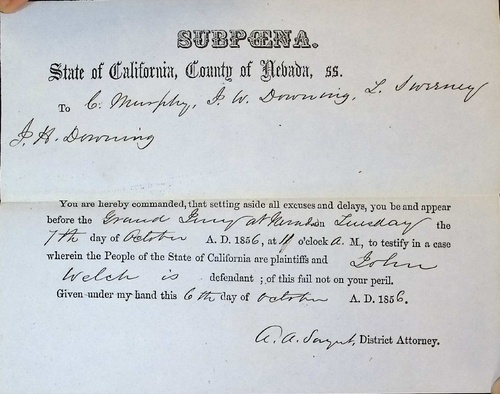 SUBPŒNA.
State of California, County of Nevada, ss.
To C. Murphy, J. W. Downing, L. Sweeney
J. H. Downing
You are hereby commanded, that setting aside all excuses and delays, you be and appear
before the Grand Jury at Nevada on Tuesday the
7th day of October A. D. 1856, at o'clock A. M, to testify in a case
wherein the People of the State of California are plaintiffs and John
Welch is defendant ; of this fail not on your peril.
Given under my hand this 6th day of October A. D. 1856.
A. A. Sargent, District Attorney.